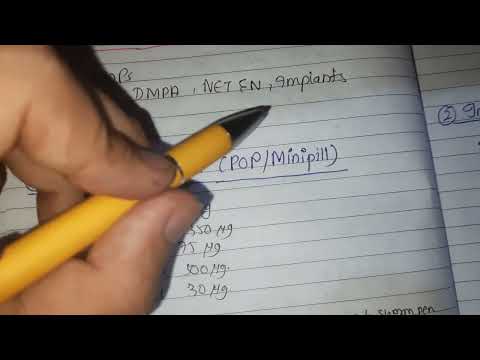 DMPA, NET EN, Implants
(POP/Minipill)
350 µg
75 µg
300 µg
30 µg
②